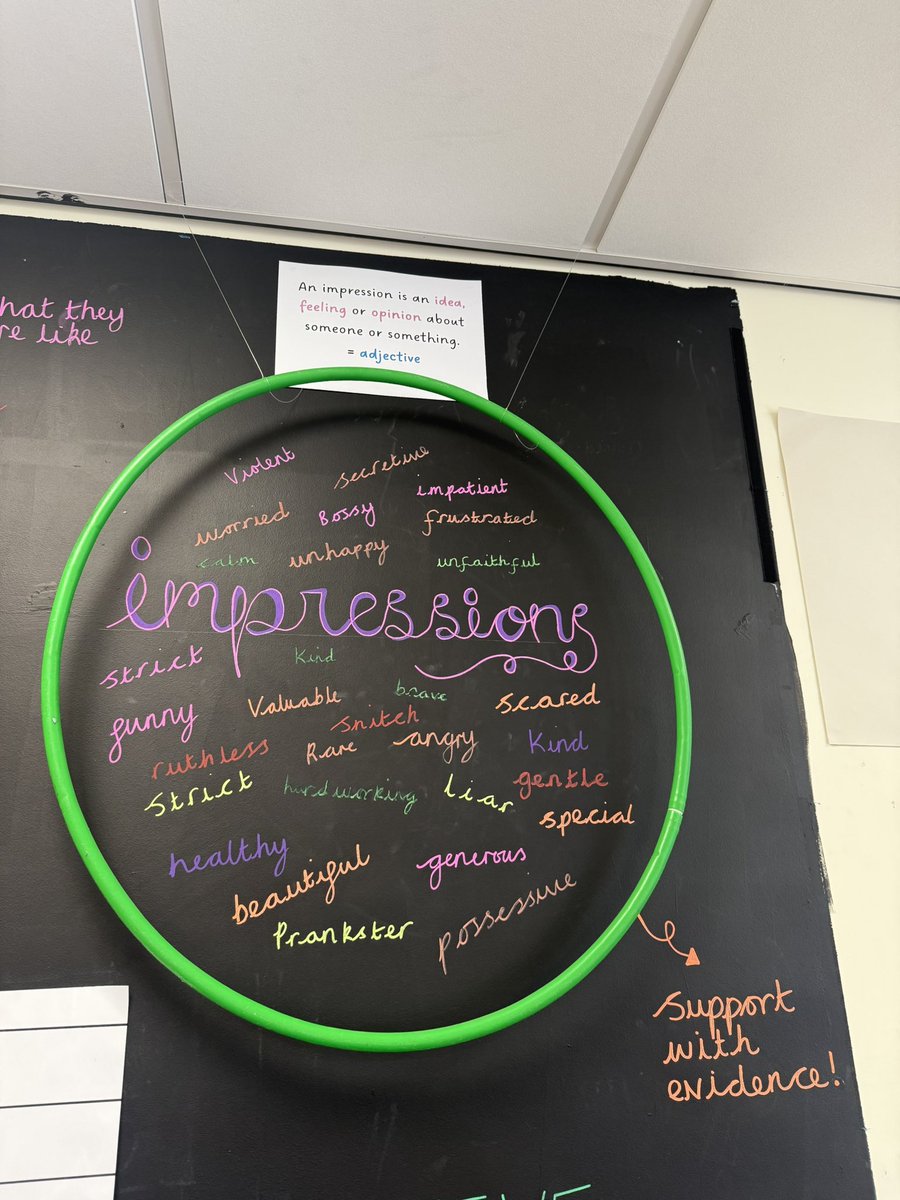 hat they
re like
An impression is an idea,
feeling or opinion about
someone or something.
= adjective
Violent
secretive
impatient
worried
Bossy
frustrated
calm
unhappy
unfaithful
impressions
strict
Kind
funny
Valuable
brave
scared
snitch
ruthless
Rare
angry
Kind
strict
hardworking
liar
gentle
special
healthy
beautiful
generous
Prankster
possessive
support
with
evidence!